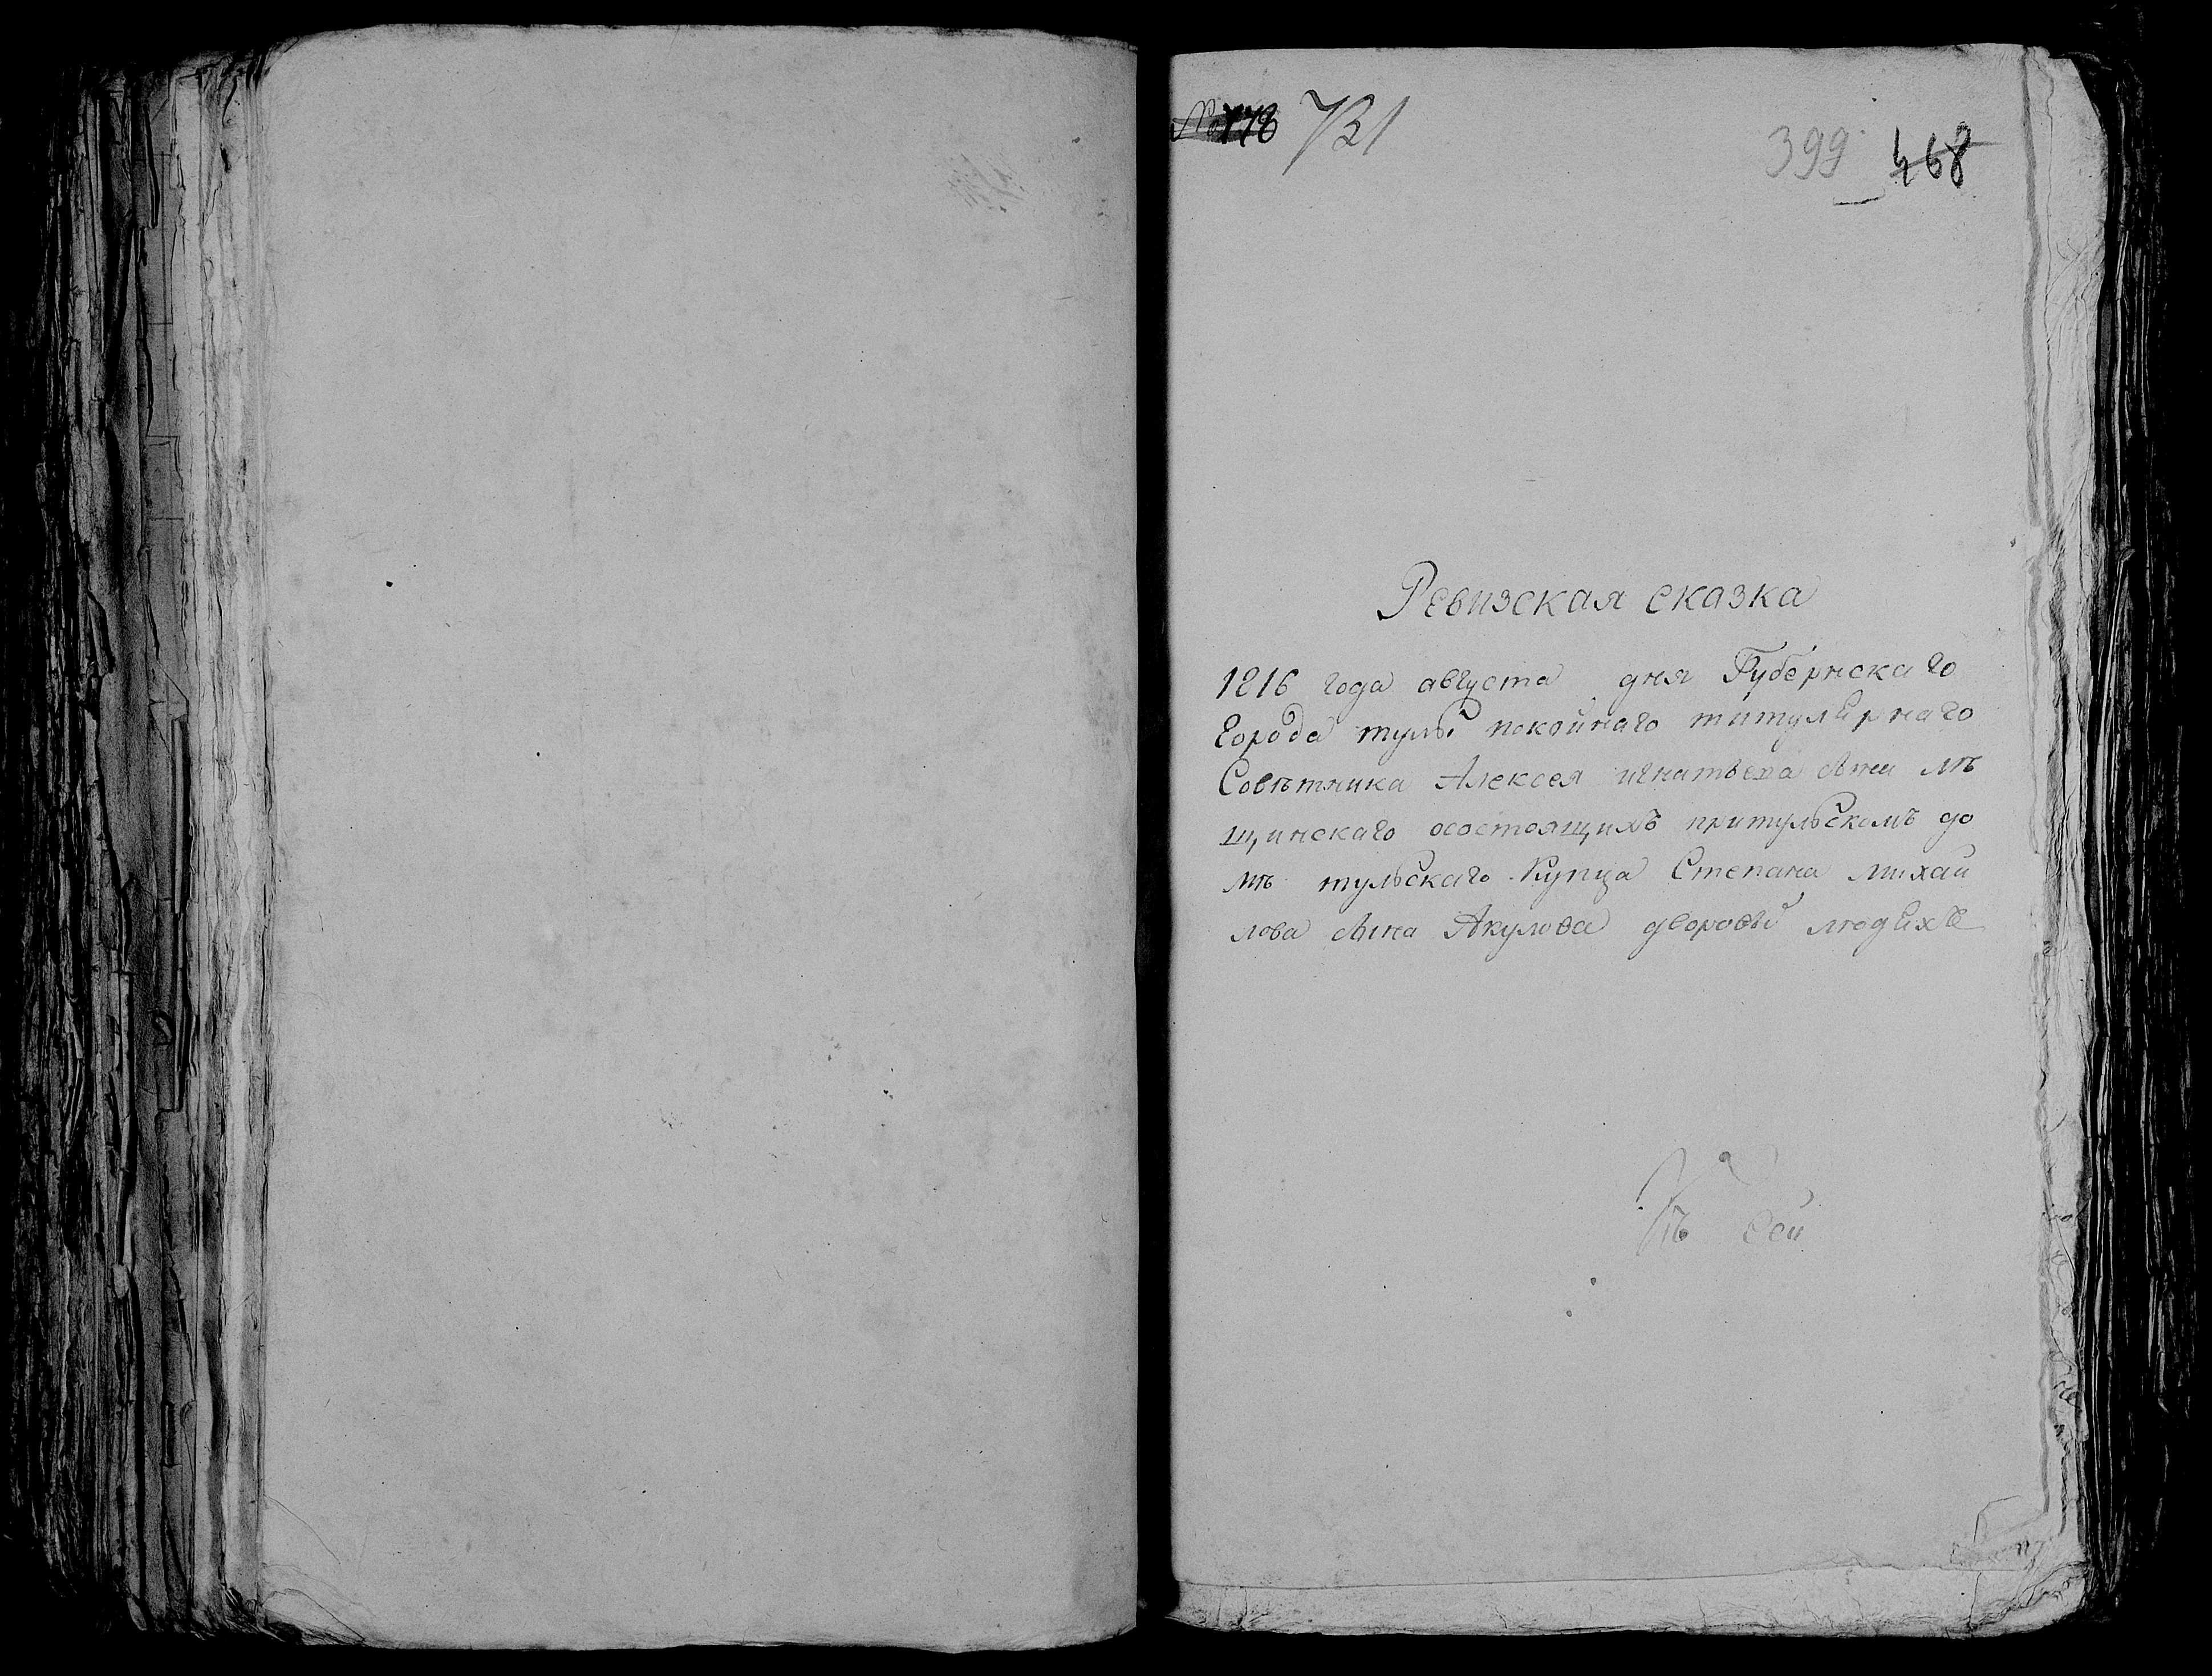 731
399 468
Ревизская сказка
1816 года августа дня Губернскаго
Города тулы покойнаго титулярнаго
Советника Алексея игнатьева сына мѣ
щинскаго осостоящихъ притульскомъ до
мѣ тульскаго купца Степана михаи
лова сына Акулова дворовы людяхъ
Къ сей